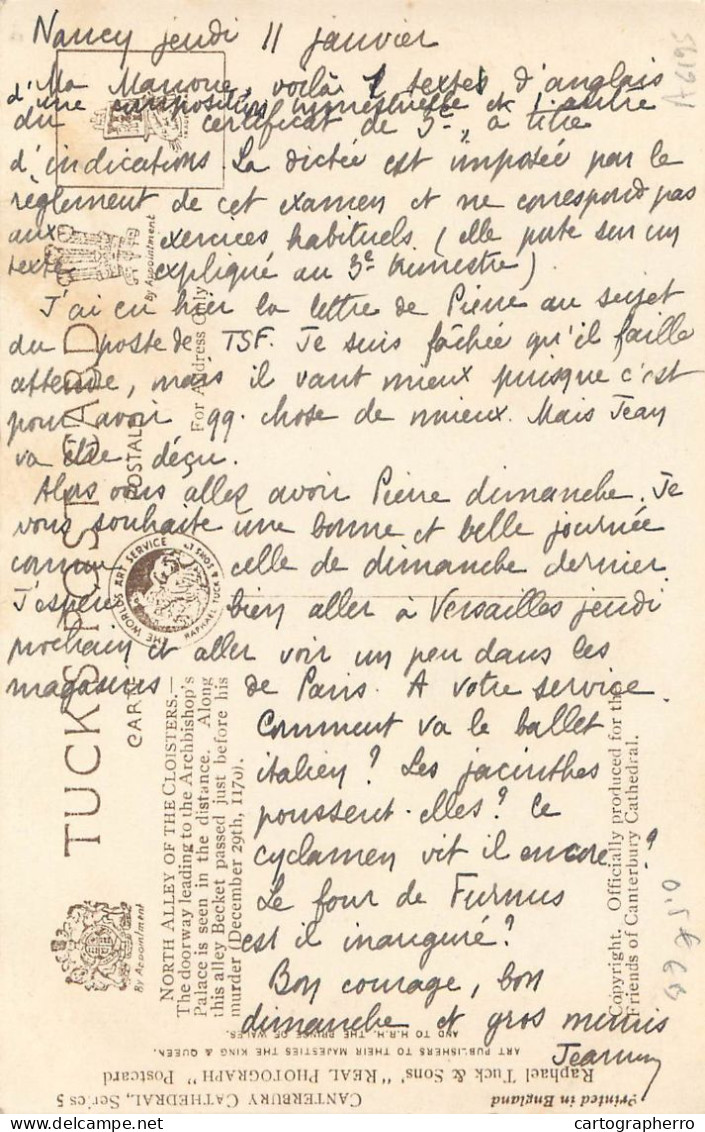 Nancy jeudi 11 janvier
Ma Manoue, voilà textes d'anglais
d'une composition trimestrielle et l'autre
du certificat de 3e, à titre
d'indications La dictée est imposée par le
règlement de cet examen et ne correspond pas
aux exercices habituels (elle porte sur un
texte expliqué au 3e trimestre)
J'ai eu hier la lettre de Pierre au sujet
du poste de TSF. Je suis fâchée qu'il faille
attendre, mais il vaut mieux puisque c'est
pour avoir qq. chose de mieux. Mais Jean
va être déçu.
Alors vous allez avoir Pierre dimanche. Je
vous souhaite une bonne et belle journée
comme celle de dimanche dernier
J'espère bien aller à Versailles jeudi
prochain et aller voir un peu dans les
magasins de Paris. A votre service
Comment va le ballet
italien? Les jacinthes
poussent-elles? Ce
cyclamen vit il encore?
Le four de Furnus
est il inauguré?
Bon courage, bon
dimanche et gros mimis
A6195
TUCK'S POST CARD
CARTE POSTALE
For Address Only
By Appointment
By Appointment
THE WORLDS ART SERVICE
RAPHAEL TUCK & SONS LTD
NORTH ALLEY OF THE CLOISTERS.—
The doorway leading to the Archbishop's
Palace is seen in the distance. Along
this alley Becket passed just before his
murder (December 29th, 1170).
Copyright. Officially produced for the
Friends of Canterbury Cathedral.
CANTERBURY CATHEDRAL, Series 5
Raphael Tuck & Sons' "REAL PHOTOGRAPH" Postcard
ART PUBLISHERS TO THEIR MAJESTIES THE KING & QUEEN,
AND TO H.R.H. THE PRINCE OF WALES.
Printed in England
cartographerro